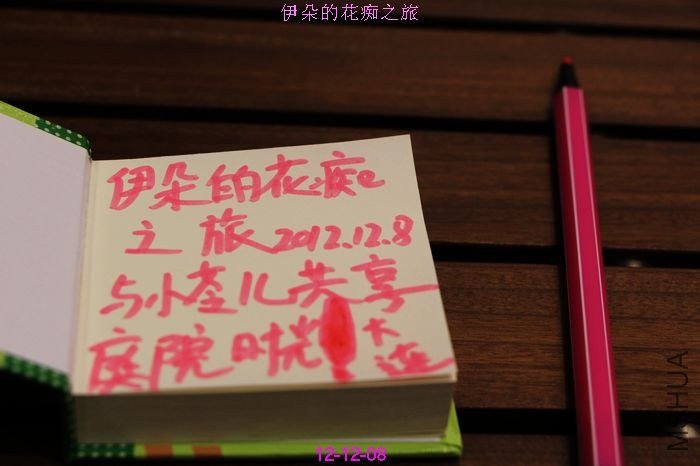 伊朵的花痴之旅
伊朵的花痴
之旅2012.12.8
与小奎儿共享
庭院时光!大连
12-12-08